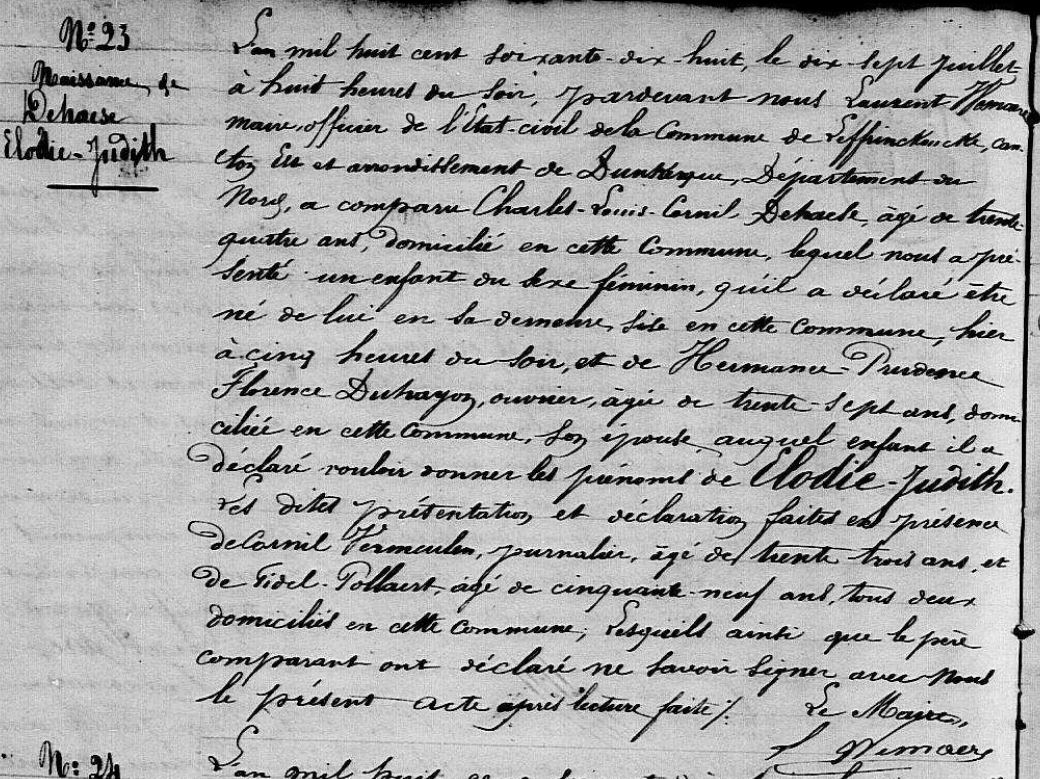 N° 23
Naissance de
Dehaese
Elodie-Judith
L'an mil huit cent soixante-dix-huit, le dix-sept juillet
à huit heures du soir, pardevant nous Laurent Wemaere
maire, officier de l'Etat-civil de la Commune de Leffrinckoucke, can-
ton Est et arrondissement de Dunkerque, Département du
Nord, a comparu Charles-Louis-Cornil Dehaese, âgé de trente-
quatre ans, domicilié en cette Commune, lequel nous a pré-
senté un enfant du sexe féminin, qu'il a déclaré être
né de lui en sa demeure, sise en cette Commune, hier
à cinq heures du soir, et de Hermance-Prudence
Florence Duhayon, ouvrier, âgée de trente-sept ans, domi-
ciliée en cette Commune, son épouse, auquel enfant il a
déclaré vouloir donner les prénoms de Elodie-Judith.
Les dites présentation et déclaration faites en présence
de Cornil Vermeulen, journalier, âgé de trente-trois ans, et
de Fidel Pollaert, âgé de cinquante-neuf ans, tous deux
domiciliés en cette Commune; Lesquels ainsi que le père
comparant ont déclaré ne savoir signer avec Nous
le présent acte après lecture faite./. Le Maire,
L Wemaere
N° 24
L'an mil huit